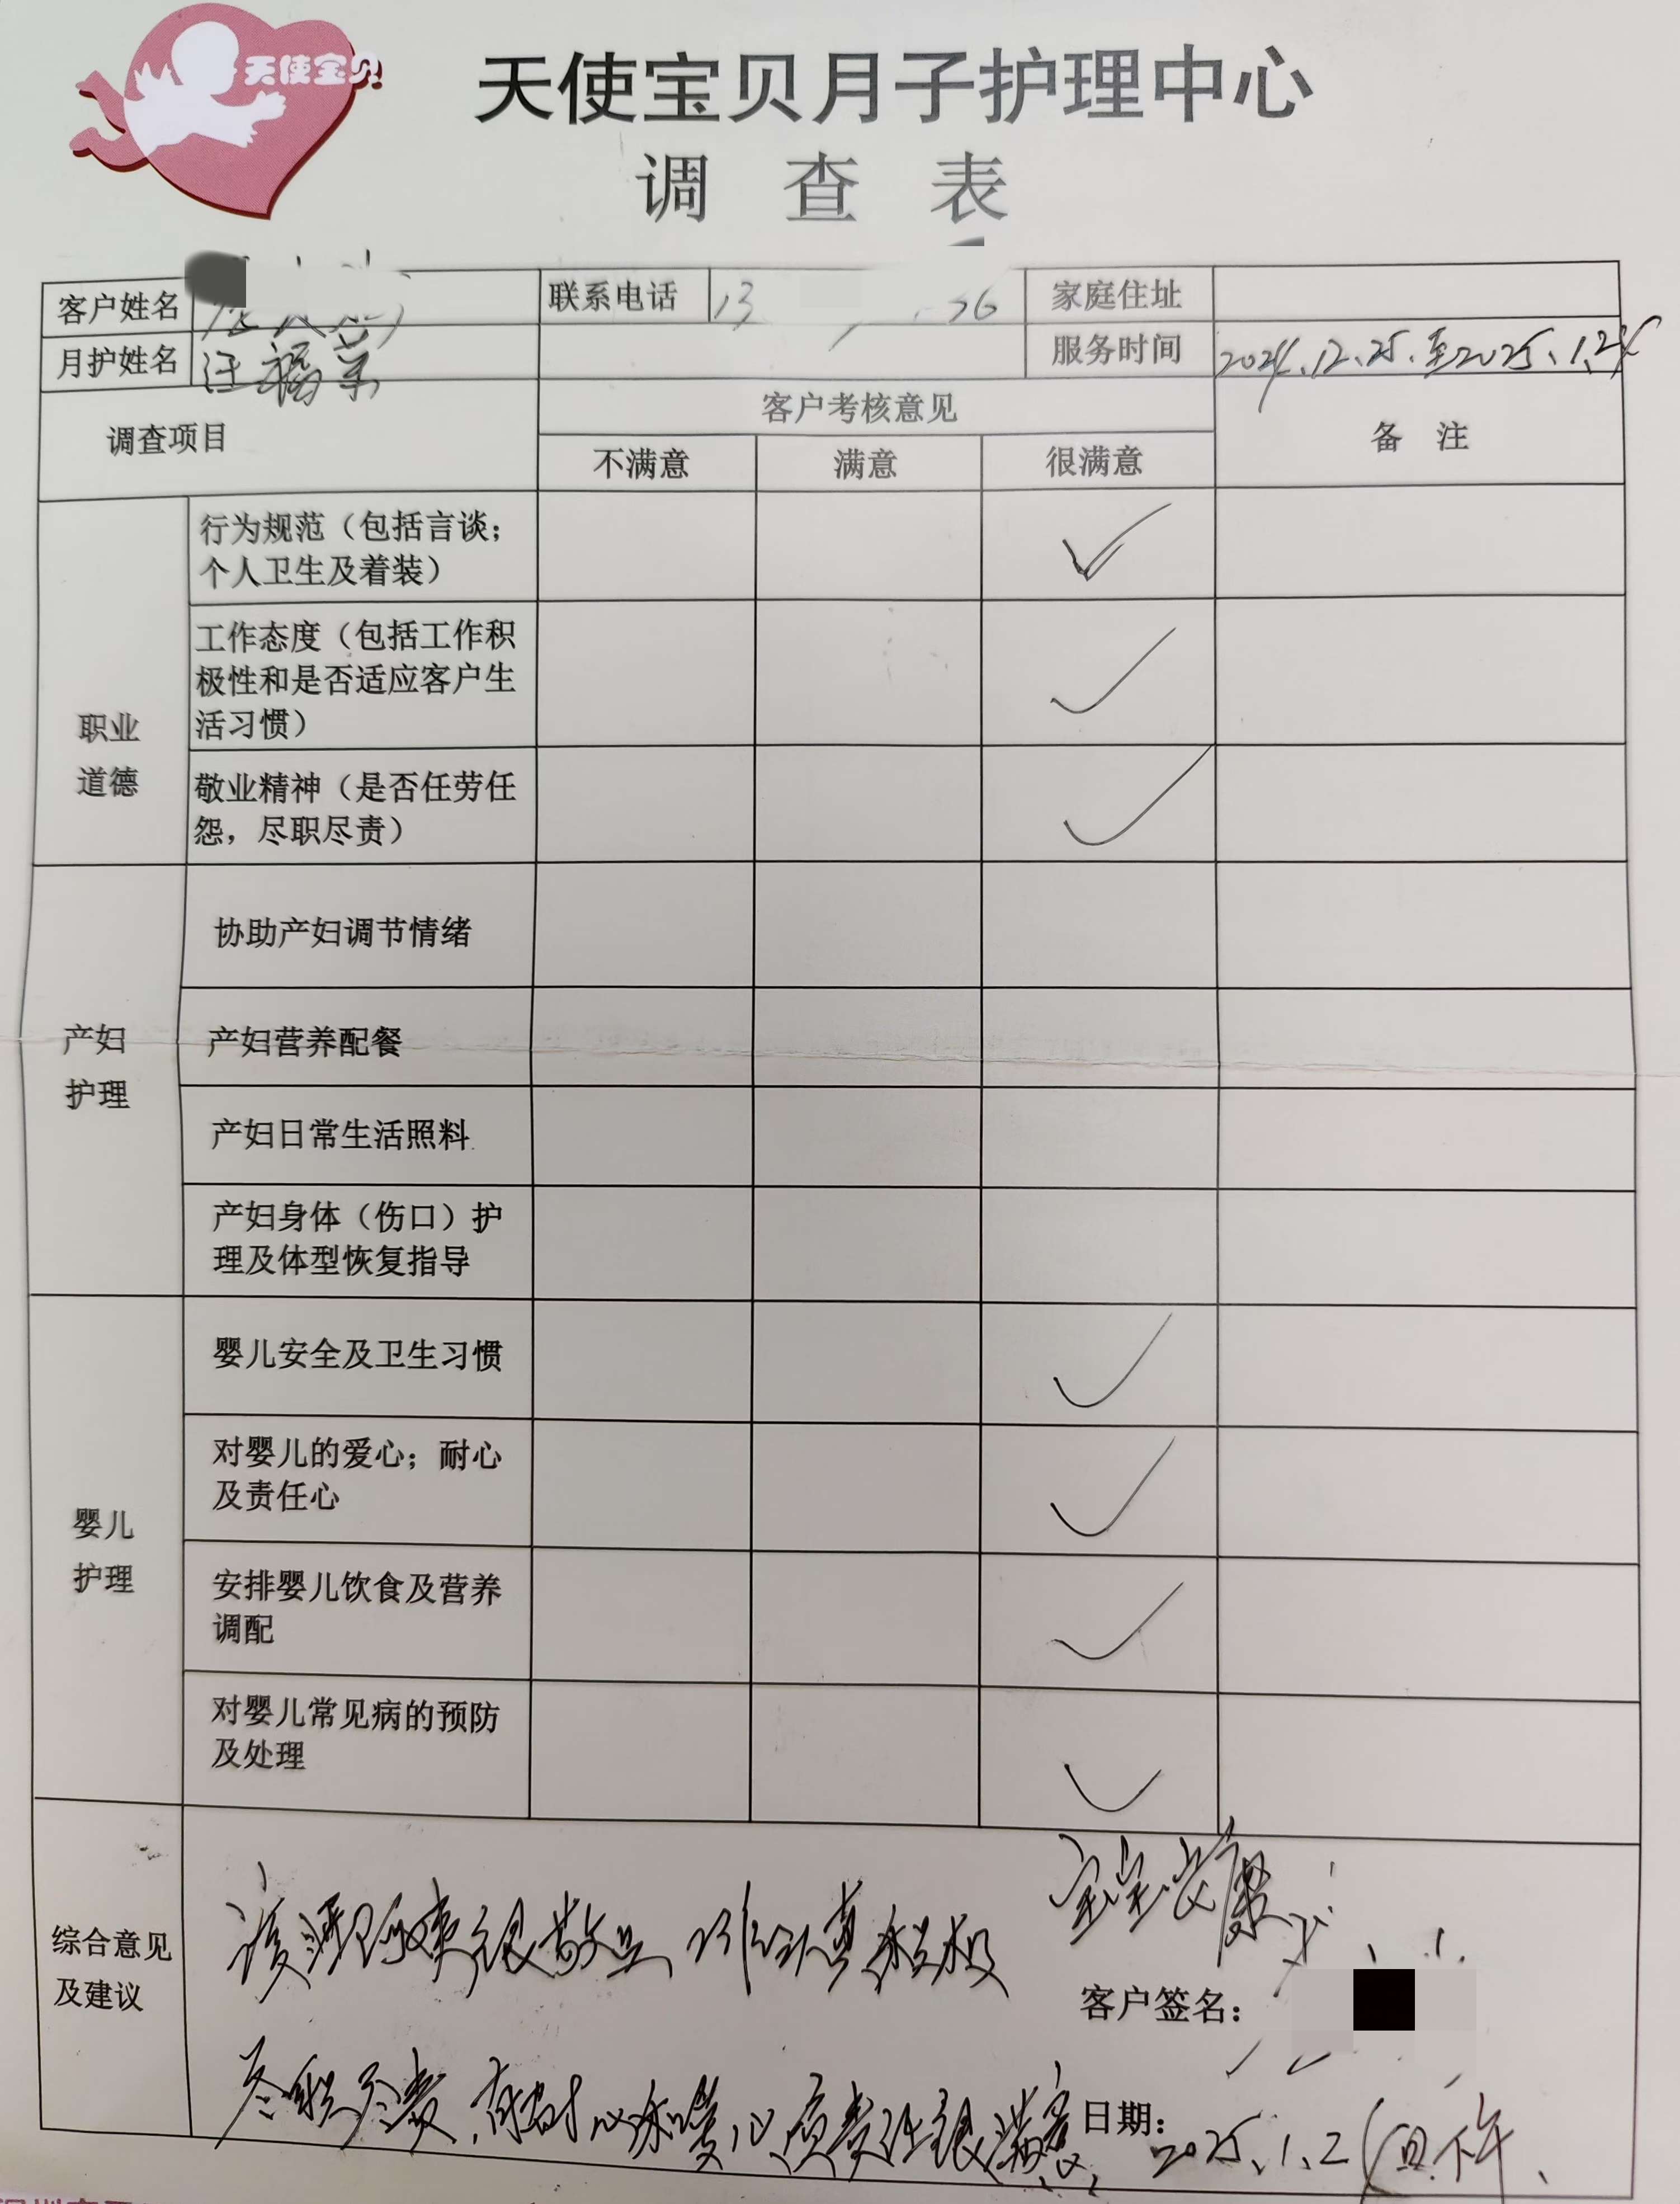 天使宝贝
天使宝贝月子护理中心
调 查 表
客户姓名 联系电话 13 36 家庭住址
月护姓名 汪福荣 服务时间 2024.12.25.至2025.1.24
调查项目 客户考核意见 备 注
不满意 满意 很满意
职业
道德
行为规范（包括言谈；
个人卫生及着装）
工作态度（包括工作积
极性和是否适应客户生
活习惯）
敬业精神（是否任劳任
怨，尽职尽责）
产妇
护理
协助产妇调节情绪
产妇营养配餐
产妇日常生活照料
产妇身体（伤口）护
理及体型恢复指导
婴儿
护理
婴儿安全及卫生习惯
对婴儿的爱心；耐心
及责任心
安排婴儿饮食及营养
调配
对婴儿常见病的预防
及处理
综合意见
及建议
该 阿姨很敬业 工作认真积极
尽职尽责 有耐心和爱心 负责任很满意
客户签名：
日期： 2025.1.21日下午